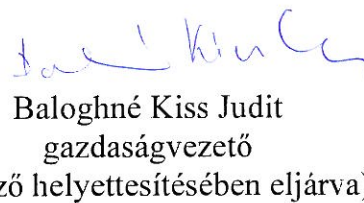 Baloghné Kiss Judit
gazdaságvezető
ző helyettesítésében eljárva)